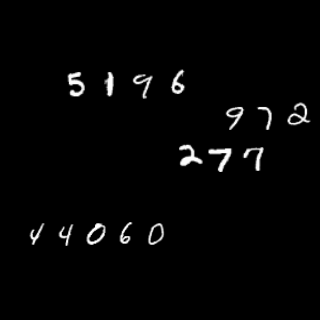 5196
972
277
44060